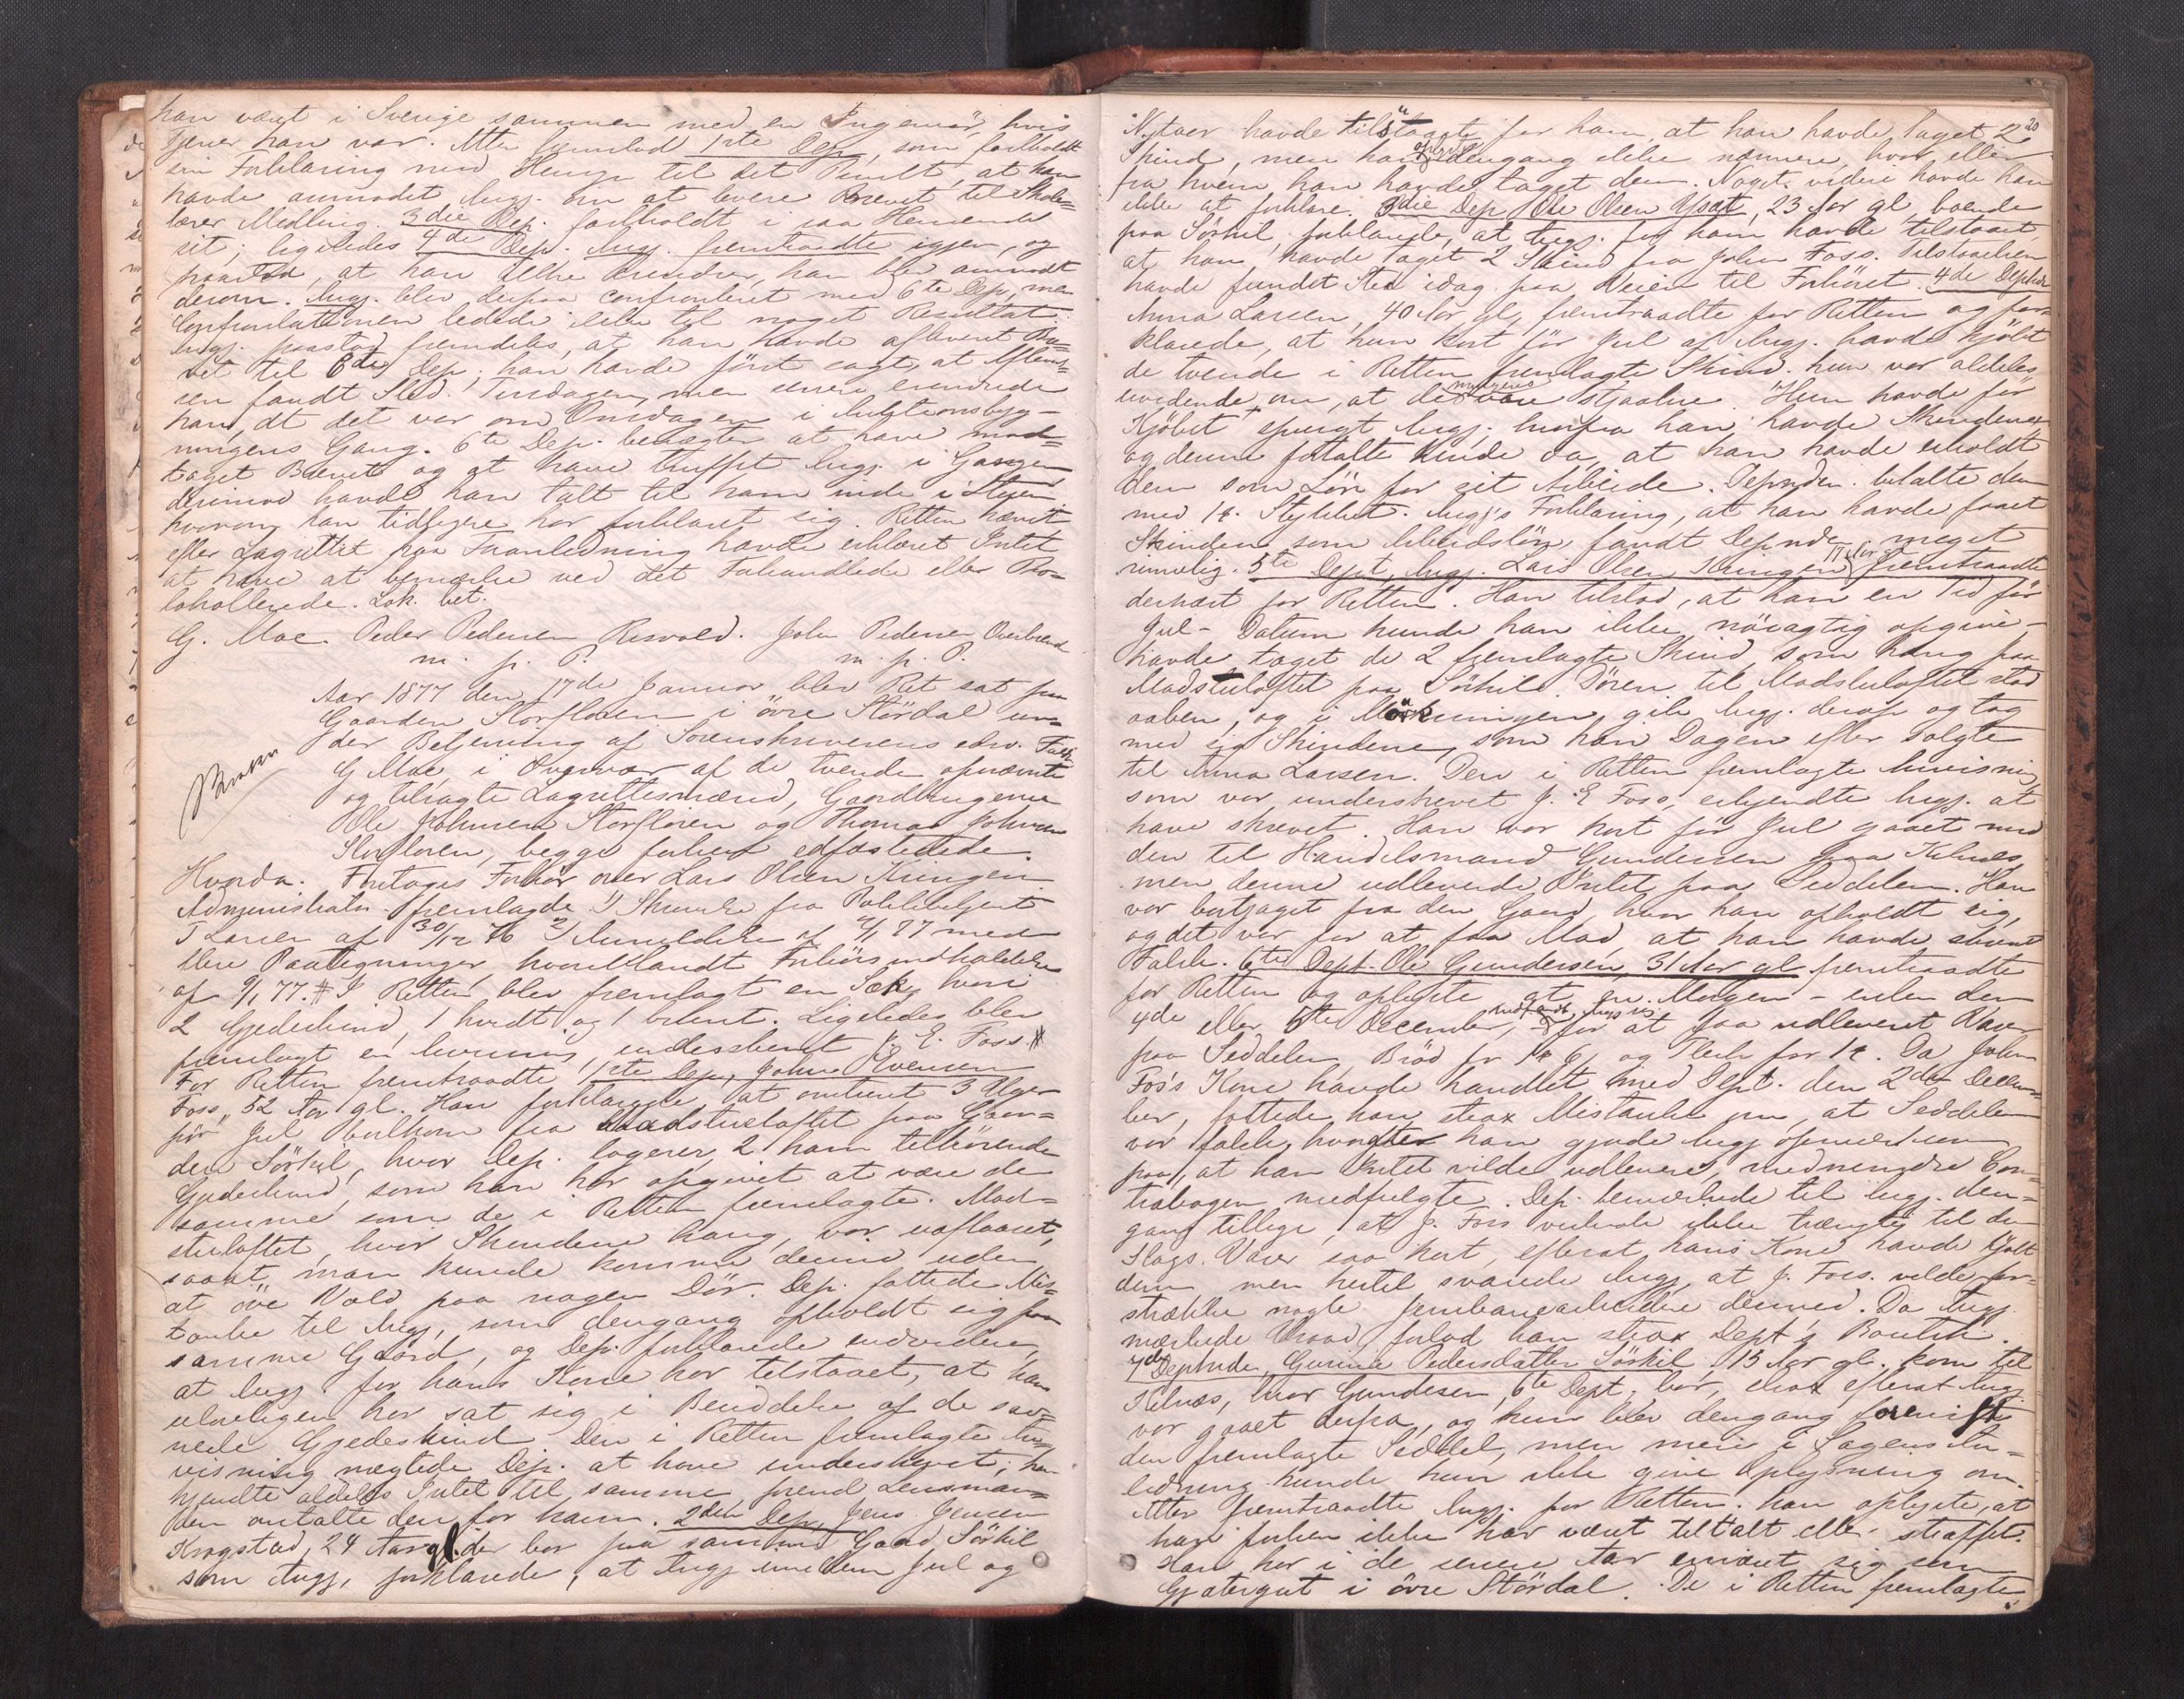 han været i Sverige sammen med en Ingeniør, hvis
Tjener han var. Atter fremlod 1ste Dep, som forholdt
sin Forklaring med Hensyn til det Punkt, at han
havde anmodet Angj. om at levere Brevet til Skole-
lærer Midling. 3die Dep. forholdt i saa Henseende
sit; ligeledes 4de Dep. Angj. fremtraadte igjen, og
paastod, at han ikke erindrer, han blev anmodt
derom. Angj. blev derpaa confronteret med 6te Dep, men
Confrontationen ledede ikke til noget Resultat.
Angj. paastod fremdeles, at han havde afleveret Bre-
vet til 6te Dep; han havde först sagt, at Aflever-
sen fandt Sted Tirsdagen, men senere erindrede
han, at det var om Onsdagen i Auktionsbyg-
ningens Gang. 6te Dep. benægter at have mod-
taget Brevet og at have truffet Angj. i Gangen
derimod havde han talt til ham inde i Stuen
hvorom han tidligere har forklaret sig. Retten hævet
efter Lagrettet paa Foranledning havde erklæret Intet
at have at bemærke ved det Forhandlede eller Pro-
tokollerede. Lok. bet.
G. Moe. Peder Pedersen Risvold. John Pedersen Overland
m. p. P. m. p. P.
Aar 1877 den 17de Januar blev Ret sat paa
Gaarden Storfloren i övre Stördal un-
der Betjening af Sorenskriverens edsv. Fuldm.
G Moe, i Overvær af de tvende opnævnte
og tilsagte Lagrettesmænd, Gaardbrugerne
Ole Johnsen Storfloren og Thomas Johnsen
Storfloren, begge forhen edfæstede.
Hvorda: Foretages Forhör over Lars Olsen Kungen
Administrator fremlagde 1) Skrivelse fra Politibetjent
T Larsen af 30/12 76 2) Anmeldelse af 4/1 77 med
flere Paategninger, hvoriblandt Forhörsindkaldelse
af 9/1 77. # I Retten blev fremlagt en Sæk, hvori
2 Gjedeskind, 1 hvidt og 1 brunt. Ligeledes blev
fremlagt en Anvisning, underskrevet J. E. Foss #
For Retten fremtraadte 1ste Dep, John Evensen
Foss, 52 Aar gl. Han forklarede, at omtrent 3 Uger
för Jul bortkom fra Madstueloftet paa Gaar-
den Sörkil, hvor Dep. logerer, 2 ham tilhörende
Gjedeskind, som han har opgivet at være de
samme som de i Retten fremlagte. Mad-
stueloftet, hvor Skindene hang, var uaflaaset,
saaat man kunde komme derind uden
at öve Vold paa nogen Dör. Dep. fattede Mis-
tanke til Angj, som dengang opholdt sig paa
samme Gaard, og Dep. forklarede endvidere,
at Angj. for hans Kone har tilstaaet, at han
ulovligen har sat sig i Besiddelse af de sav-
nede Gjedeskind. Den i Retten fremlagte An-
visning nægtede Dep. at have underskrevet; han
kjendte aldeles Intet til samme forend Lensman-
den omtalte den for ham. 2den Dep, Jens Jensen
Krogstad, 24 Aar gl. der bor paa samme Gaard Sörkil
som Angj, forklarede, at Angj mellem Jul og
20
Nytaar havde tilstaaet for ham, at han havde taget 2
Skind, men han opgav dengang ikke nærmere, hvor eller
fra hvem han havde taget dem. Noget videre havde han
ikke at forklare. 3die Dep Ole Olsen Ysat, 23 Aar gl, boende
paa Sörkil, forklarede, at Angj. for ham havde tilstaaet
at han havde taget 2 Skind fra John Foss. Tilstaaelsen
havde fundet Sted idag paa Veien til Forhöret. 4de Deptinde
Anna Larsen, 40 Aar gl, fremtraadte for Retten og for-
klarede, at hun kort för Jul af Angj. havde kjöbt
de tvende i Retten fremlagte Skind. hun var aldeles
uvidende om, at de vare stjaalne. Hun havde för
Kjöbet spurgt Angj. hvorfra han havde Skindene
og denne fortalte hende da, at han havde erholdt
dem som Lön for sit Arbeide. Depnden. betalte dem
med 1 Stykket. Angj's Forklaring, at han havde faaet
Skindene som Arbeidslön, fandt Depnden meget
rimelig. 5te Dept, Angj. Lars Olsen Kungen 17 Aar fremtraadte
dernæst for Retten. Han tilstod, at han en Tid för
Jul - Datum kunde han ikke nöiagtig opgive -
havde taget de 2 fremlagte Skind, som hang paa
Madstueloftet paa Sörkil. Dören til Madstueloftet stod
aaben, og i Mörkningen gik Angj. derop og tog
med sig Skindene, som han Dagen efter solgte
til Anna Larsen. Den i Retten fremlagte Anvisning
som var underskrevet J. E Foss, erkjendte Angj. at
have skrevet. Han var kort för Jul gaaet med
den til Handelsmand Gundersen paa Kilnæs,
men denne udleverede Intet paa Seddelen. Han
var bortjaget fra den Gaard, hvor han opholdt sig,
og det var for at faa Mad, at han havde skrevet
Falsk. 6te Dept. Ole Gundersen, 31 Aar gl fremtraadte
for Retten og oplyste, at en Morgen - enten den
4de eller 5te December, indfandt Angj sig for at faa udleveret Varer
paa Seddelen, Bröd for 1 6 og Flesk for 1. Da John
Fos's Kone havde handlet med Dept. den 2den Decem-
ber, fattede han strax Mistanke om, at Seddelen
var falsk, hvorfor han gjorde Angj opmærksom
paa, at han Intet vilde udlevere, medmindre Con-
trabogen medfulgte. Dep. bemærkede til Angj. den-
gang tillige, at J. Foss vistnok ikke trængte til den
Slags Varer saa kort, efterat hans Kone havde kjöbt
dem, men hertil svarede Angj, at J. Foss. vilde for-
strække nogle Jernbanearbeidere dermed. Da Angj.
mærkede Uraad, forlod han strax Dept's Boutik.
7de Deptnden, Gurina Pedersdatter Sörkil 15 Aar gl. kom til
Kilnæs, hvor Gundersen, 6te Dept, bor, strax efterat Angj
var gaaet derfra, og hun blev dengang forevist
den fremlagte Seddel, men mere i Sagens An-
ledning kunde hun ikke give Oplysning om.
Atter fremtraadte Angj. for Retten. han oplyste, at
han forhen ikke har været tiltalt eller straffet.
Han har i de senere Aar ernæret sig som
Gjætergut i övre Stördal. De i Retten fremlagte